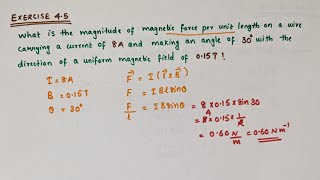 EXERCISE 4.5
What is the magnitude of magnetic force per unit length on a wire
carrying a current of 8A and making an angle of 30° with the
direction of a uniform magnetic field of 0.15T?
I = 8A
B = 0.15T
θ = 30°
F⃗ = I(l⃗ × B⃗)
F = IBl sinθ
F/l = IB sinθ = 8 × 0.15 × sin 30
= 8 × 0.15 × 1/2
= 0.60 N/m = 0.60 N m⁻¹